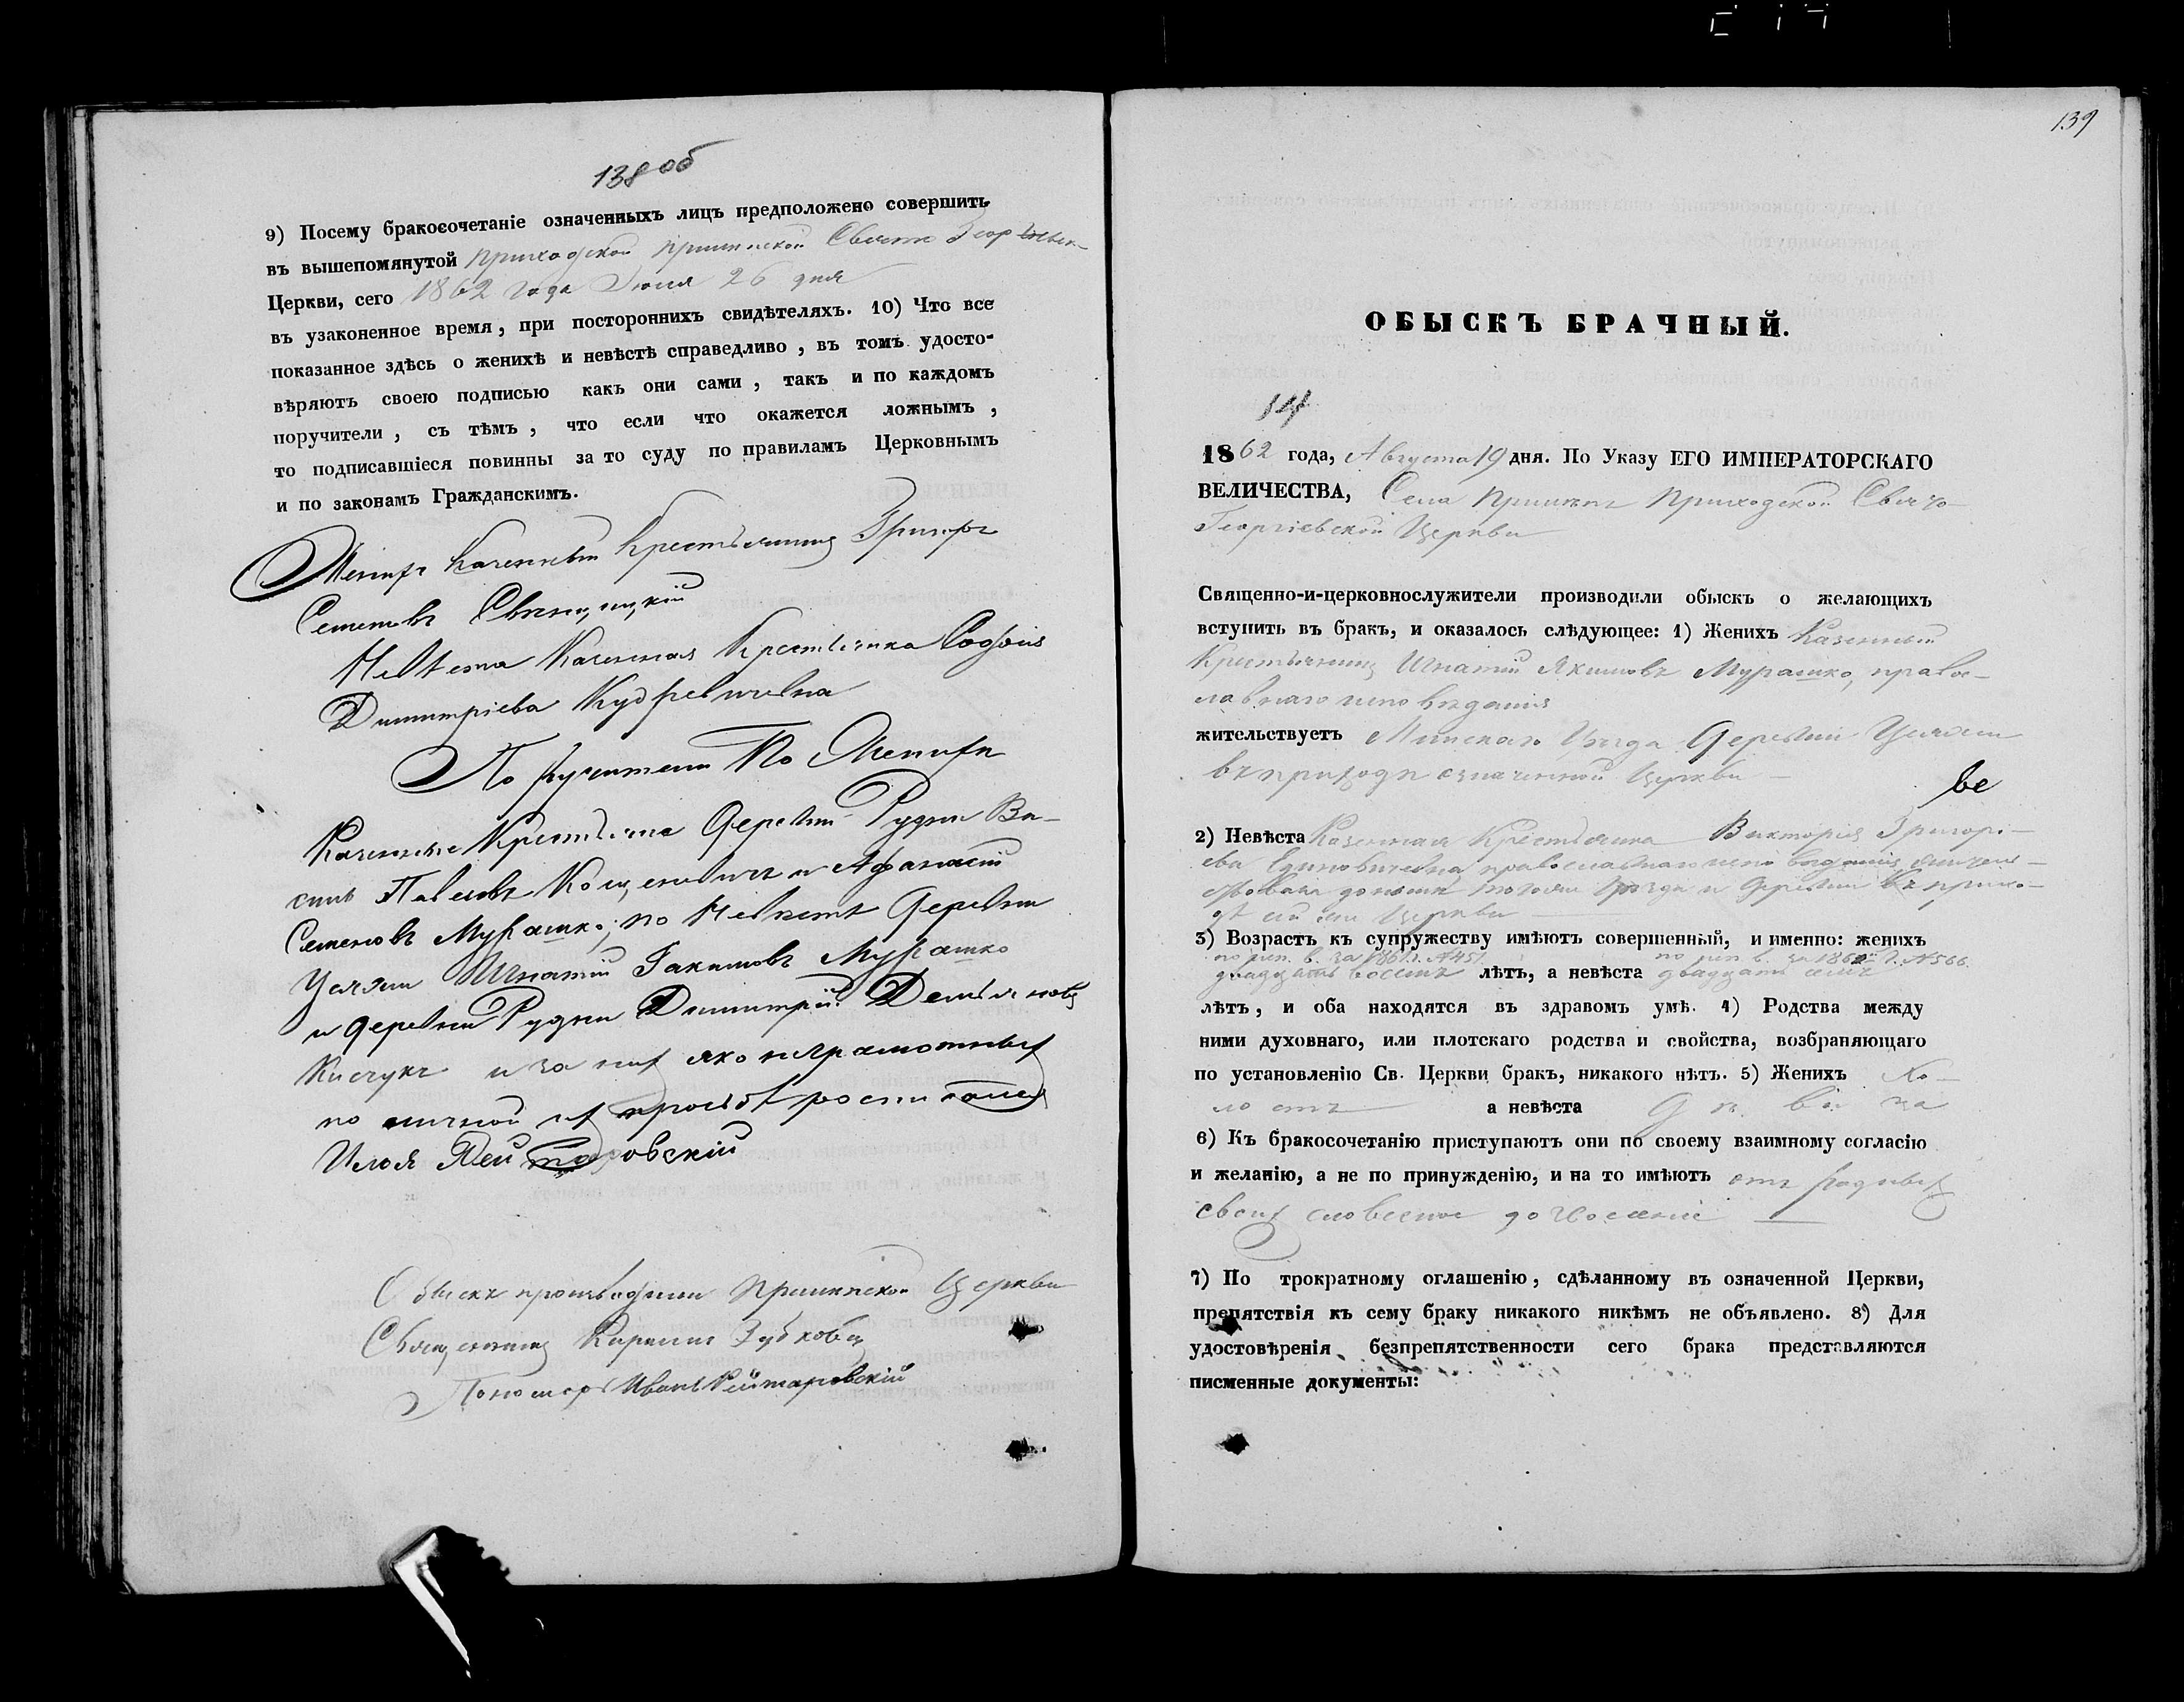 138 об
9) Посему бракосочетаніе означенныхъ лицъ предположено совершить
въ вышепомянутой приходской
Церкви, сего 1862 года Іюля 26 дня
въ узаконенное время, при постороннихъ свидѣтеляхъ. 10) Что все
показанное здѣсь о женихѣ и невѣстѣ справедливо, въ томъ удосто-
вѣряютъ своею подписью какъ они сами, такъ и по каждомъ
поручители, съ тѣмъ, что если что окажется ложнымъ,
то подписавшіеся повинны за то суду по правиламъ Церковнымъ
и по законамъ Гражданскимъ.
Женихъ Казенный Крестьянинъ Григорій
Семеновъ
Невѣста Казенная Крестьянка Софія
Димитріева Кудревичевна
Поручители По Женихѣ
Казенные Крестьяне Деревни Рудни Ва-
силь Павловъ и Афанасій
Семеновъ Мурашко; по Невѣстѣ Деревни
Усляни Игнатій Іакимовъ Мурашко
и деревни Рудни Димитрій Демьяновъ
и за них яко неграмотных
по личной их просьбѣ росписался
Илья Рейтаровскій
Обыскъ производили Церкви
Священникъ Кириллъ Зубковичъ
Пономарь Иванъ Рейтаровскій
139
ОБЫСКЪ БРАЧНЫЙ.
14
1862 года, Августа 19 дня. По Указу ЕГО ИМПЕРАТОРСКАГО
ВЕЛИЧЕСТВА, Села Приходской Свято-
Георгіевской Церкви
Священно-и-церковнослужители производили обыскъ о желающихъ
вступить въ бракъ, и оказалось слѣдующее: 1) Женихъ Казенный
Крестьянинъ Игнатій Якимовъ Мурашко, право-
славнаго исповѣданія
жительствуетъ Минскаго Уѣзда Деревни Усляни
въ приходѣ означенной Церкви
2) Невѣста Казенная Крестьянка Викторія Григорі-
ева православнаго исповѣданія
тогоже Уѣзда и Деревни въ прихо-
дѣ сей же Церкви
3) Возрастъ къ супружеству имѣютъ совершенный, и именно: женихъ
двадцать восемь лѣтъ, а невѣста двадцать семь
лѣтъ, и оба находятся въ здравомъ умѣ. 4) Родства между
ними духовнаго, или плотскаго родства и свойства, возбраняющаго
по установленію Св. Церкви бракъ, никакого нѣтъ. 5) Женихъ Хо-
лостъ а невѣста Дѣвица
6) Къ бракосочетанію приступаютъ они по своему взаимному согласію
и желанію, а не по принужденію, и на то имѣютъ отъ родных
своих словесное дозволеніе
7) По трократному оглашенію, сдѣланному въ означенной Церкви,
препятствія къ сему браку никакого никѣмъ не объявлено. 8) Для
удостовѣренія безпрепятственности сего брака представляются
писменные документы: